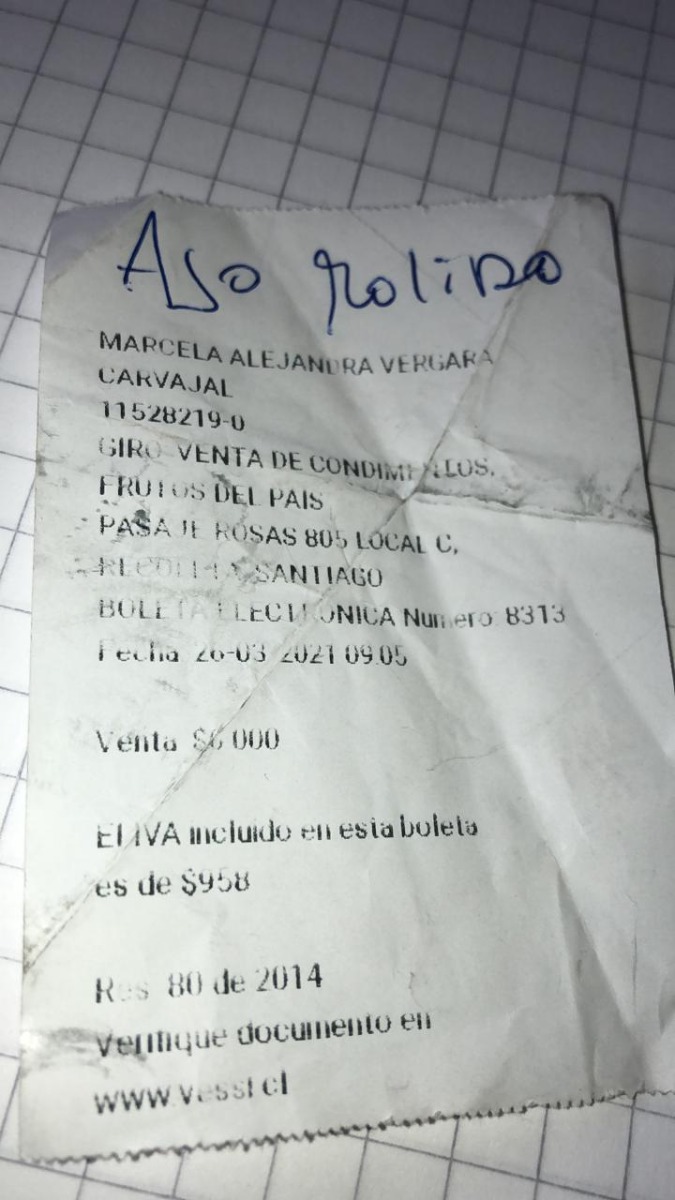 Ajo molido
MARCELA ALEJANDRA VERGARA
CARVAJAL
11528219-0
GIRO VENTA DE CONDIMENTOS,
FRUTOS DEL PAIS
PASAJE ROSAS 805 LOCAL C,
RECOLETA, SANTIAGO
BOLETA ELECTRONICA Numero: 8313
Fecha 26-03-2021 09:05
Venta $6.000
El IVA incluido en esta boleta
es de $958
Res. 80 de 2014
Verifique documento en